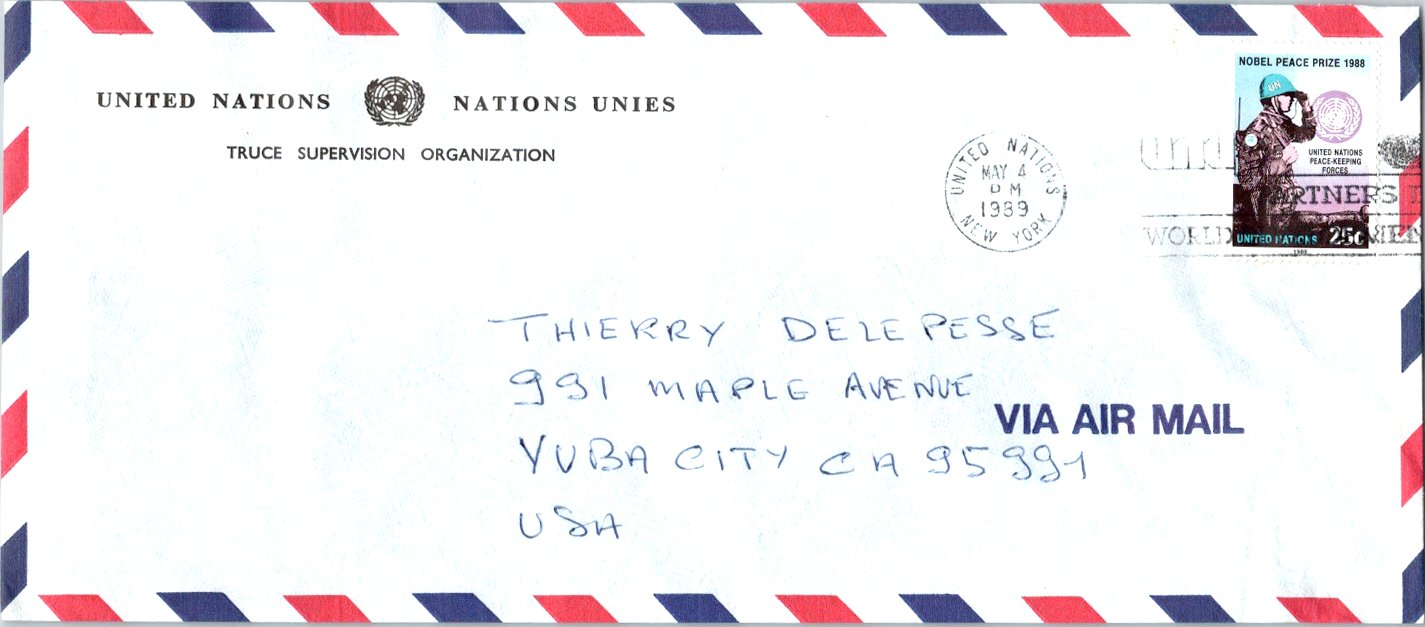 UNITED NATIONS NATIONS UNIES
TRUCE SUPERVISION ORGANIZATION
NOBEL PEACE PRIZE 1988
UN
UNITED NATIONS
PEACE-KEEPING
FORCES
UNITED NATIONS 25c
1989
UNITED NATIONS
MAY 4
PM
1989
NEW YORK
WORLD
THIERRY DELEPESSE
991 MAPLE AVENUE
VIA AIR MAIL
YUBA CITY CA 95991
USA